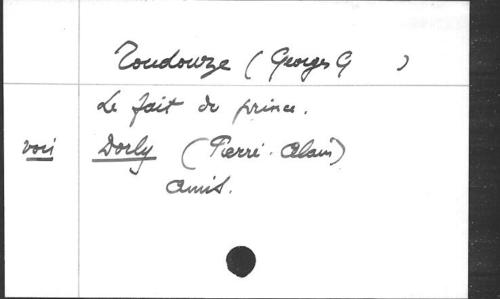 Toudouze (Georges G )
Le fait du prince.
voir Dorly (Pierre-Alain)
Amis.